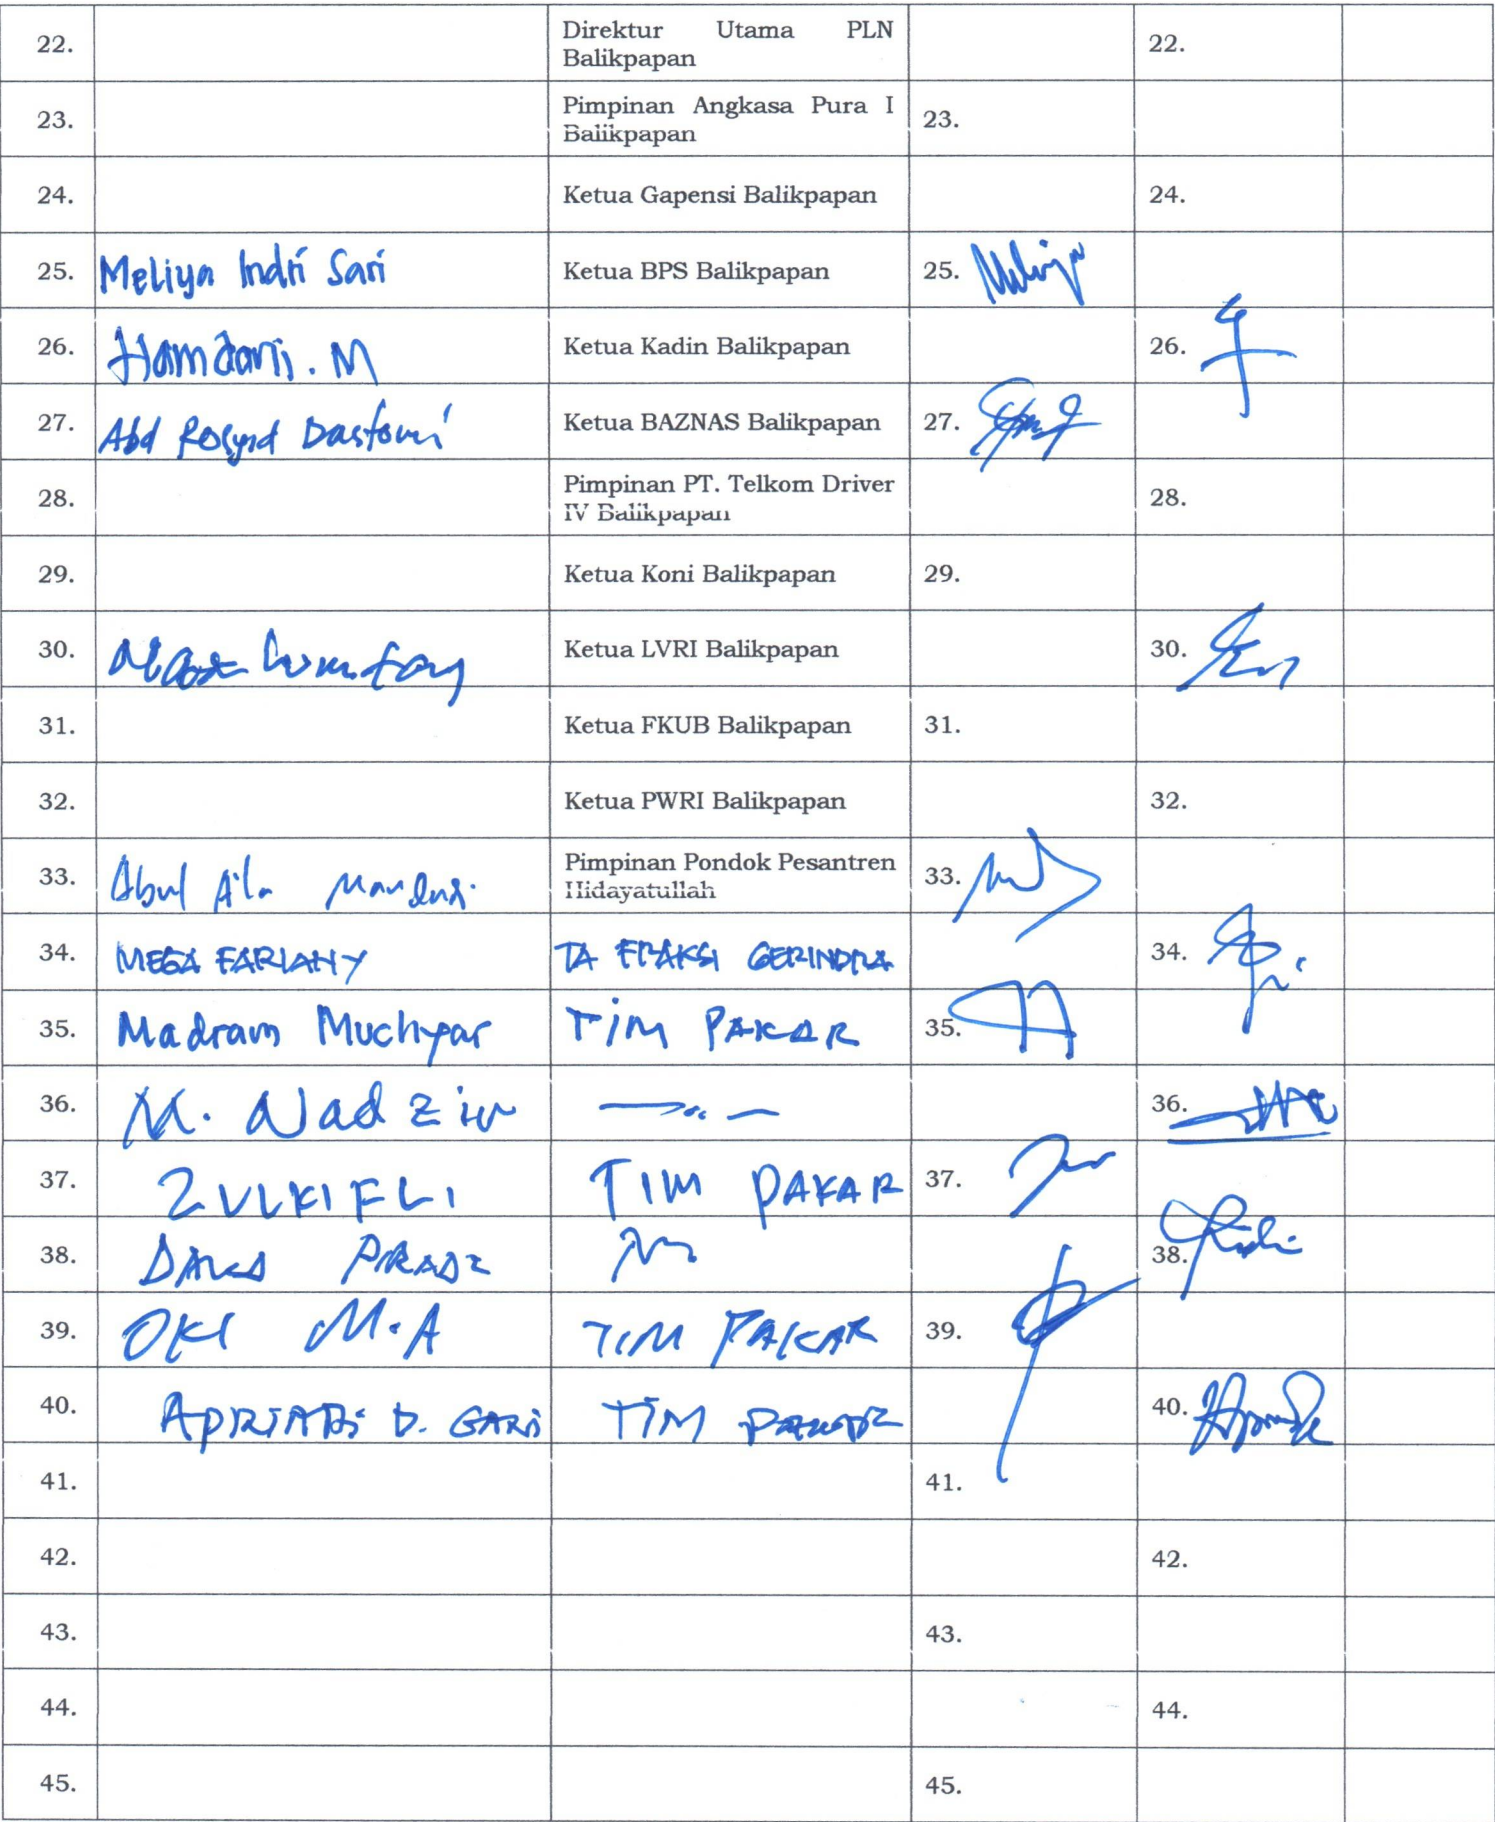 22. Direktur Utama PLN 22.
Balikpapan
23. Pimpinan Angkasa Pura I 23.
Balikpapan
24. Ketua Gapensi Balikpapan 24.
25. Meliya Indri Sari Ketua BPS Balikpapan 25.
26. Hamdani. M Ketua Kadin Balikpapan 26.
27. Abd Rosyid Ketua BAZNAS Balikpapan 27.
28. Pimpinan PT. Telkom Driver 28.
IV Balikpapan
29. Ketua Koni Balikpapan 29.
30. Ketua LVRI Balikpapan 30.
31. Ketua FKUB Balikpapan 31.
32. Ketua PWRI Balikpapan 32.
33. Abul A'la Pimpinan Pondok Pesantren 33.
Hidayatullah
34. MEGA FARIANY TA FRAKSI GERINDRA 34.
35. Madram Muchyar TIM PAKAR 35.
36. M. Nadzir 36.
37. ZULKIFLI TIM PAKAR 37.
38. 38.
39. OKI M.A TIM PAKAR 39.
40. D. TIM PAKAR 40.
41. 41.
42. 42.
43. 43.
44. 44.
45. 45.